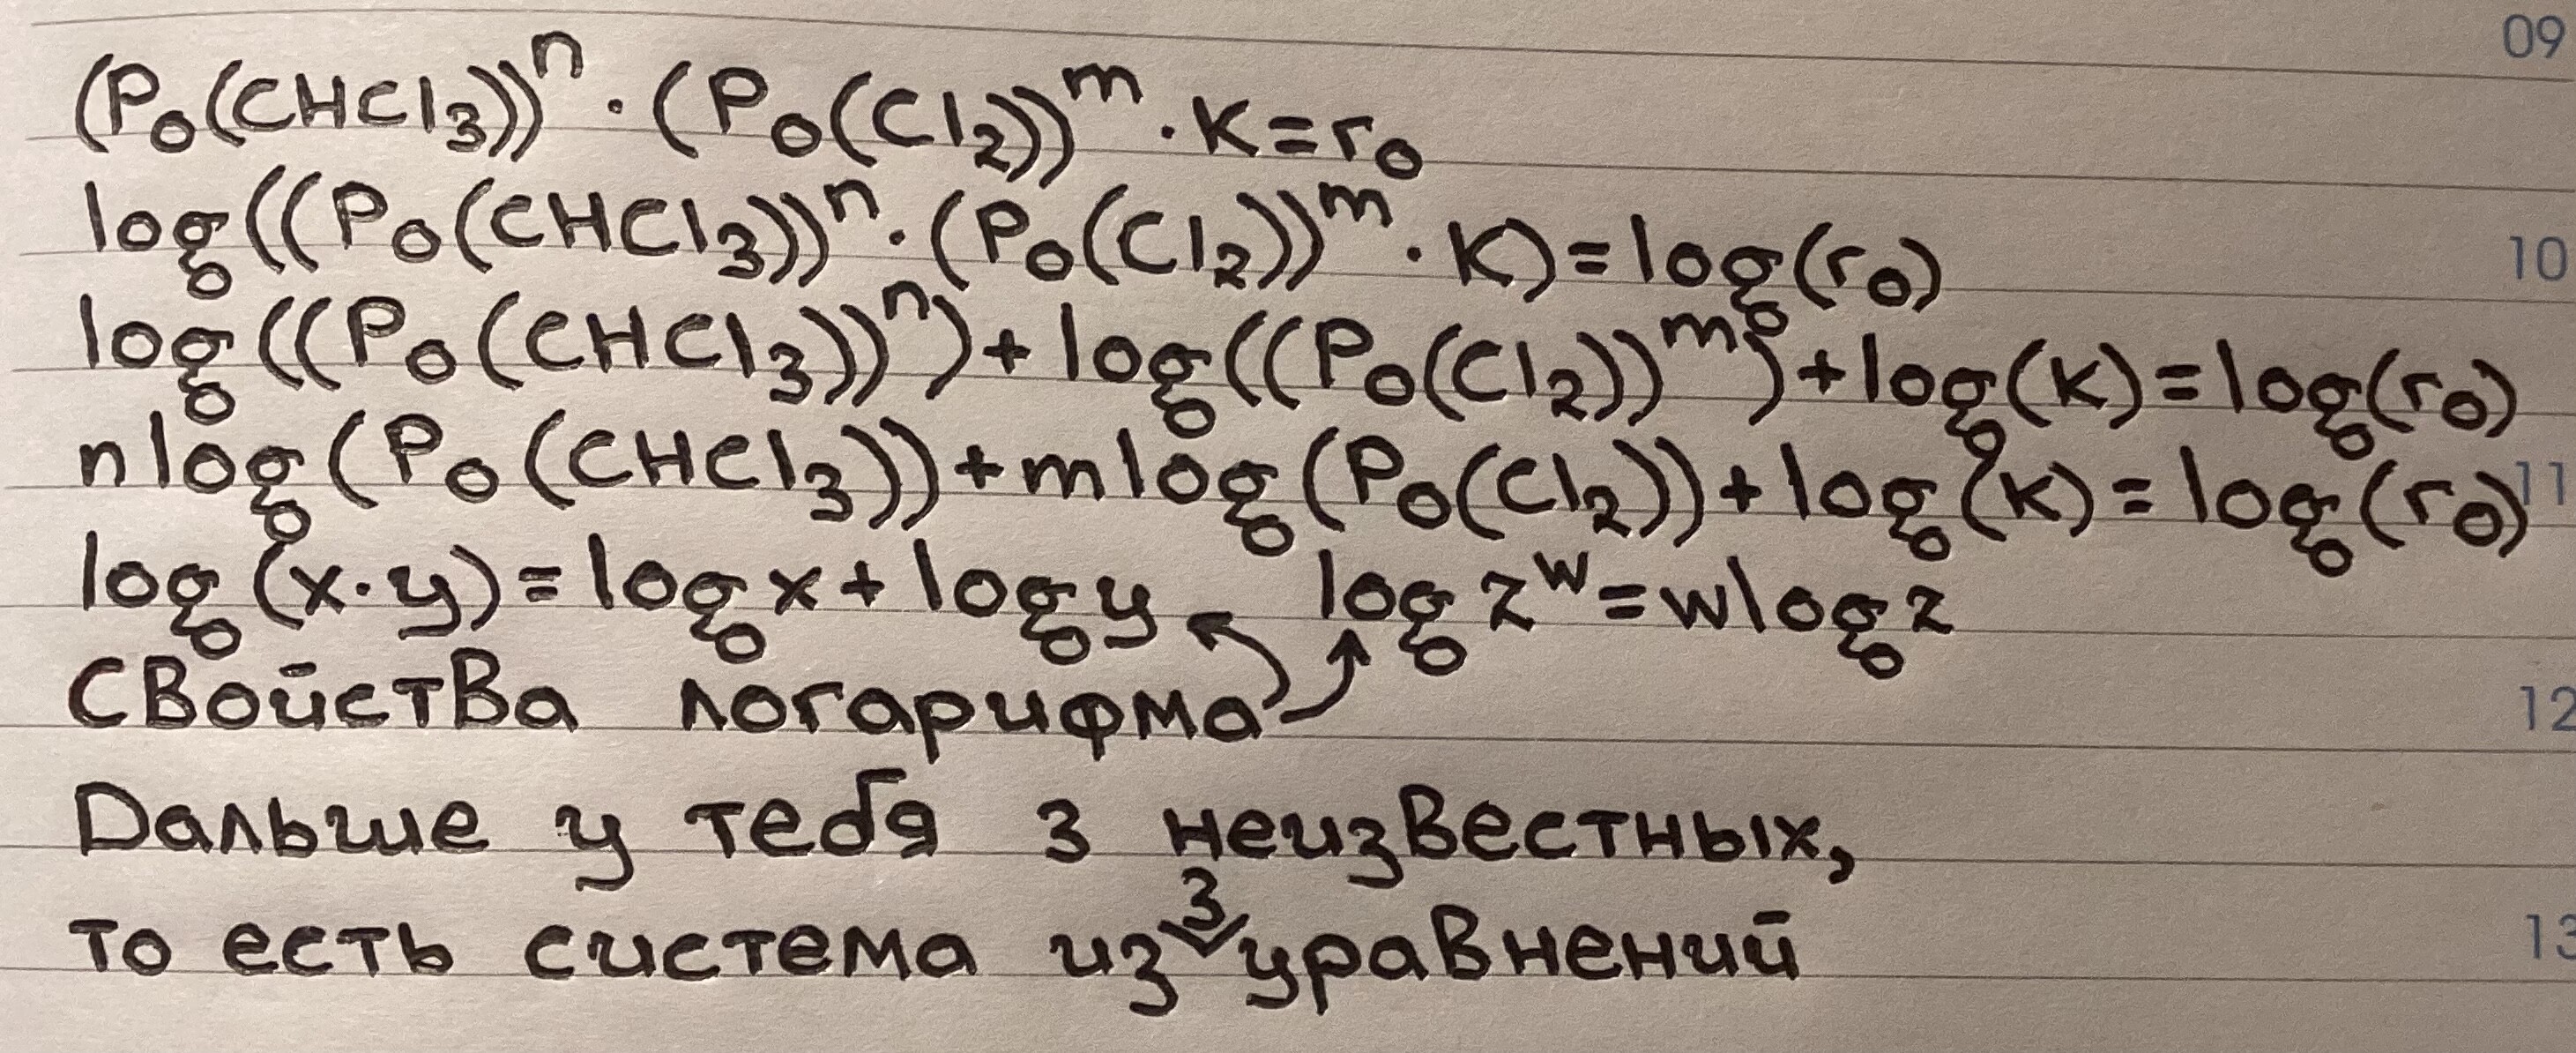 09
(P₀(CHCl₃))ⁿ · (P₀(Cl₂))ᵐ · K = r₀
log((P₀(CHCl₃))ⁿ · (P₀(Cl₂))ᵐ · K) = log(r₀)
10
log((P₀(CHCl₃))ⁿ) + log((P₀(Cl₂))ᵐ) + log(K) = log(r₀)
n log(P₀(CHCl₃)) + m log(P₀(Cl₂)) + log(K) = log(r₀)
11
log(x·y) = log x + log y log zʷ = w log z
свойства логарифма
12
Дальше у тебя 3 неизвестных,
то есть система из 3 уравнений
13